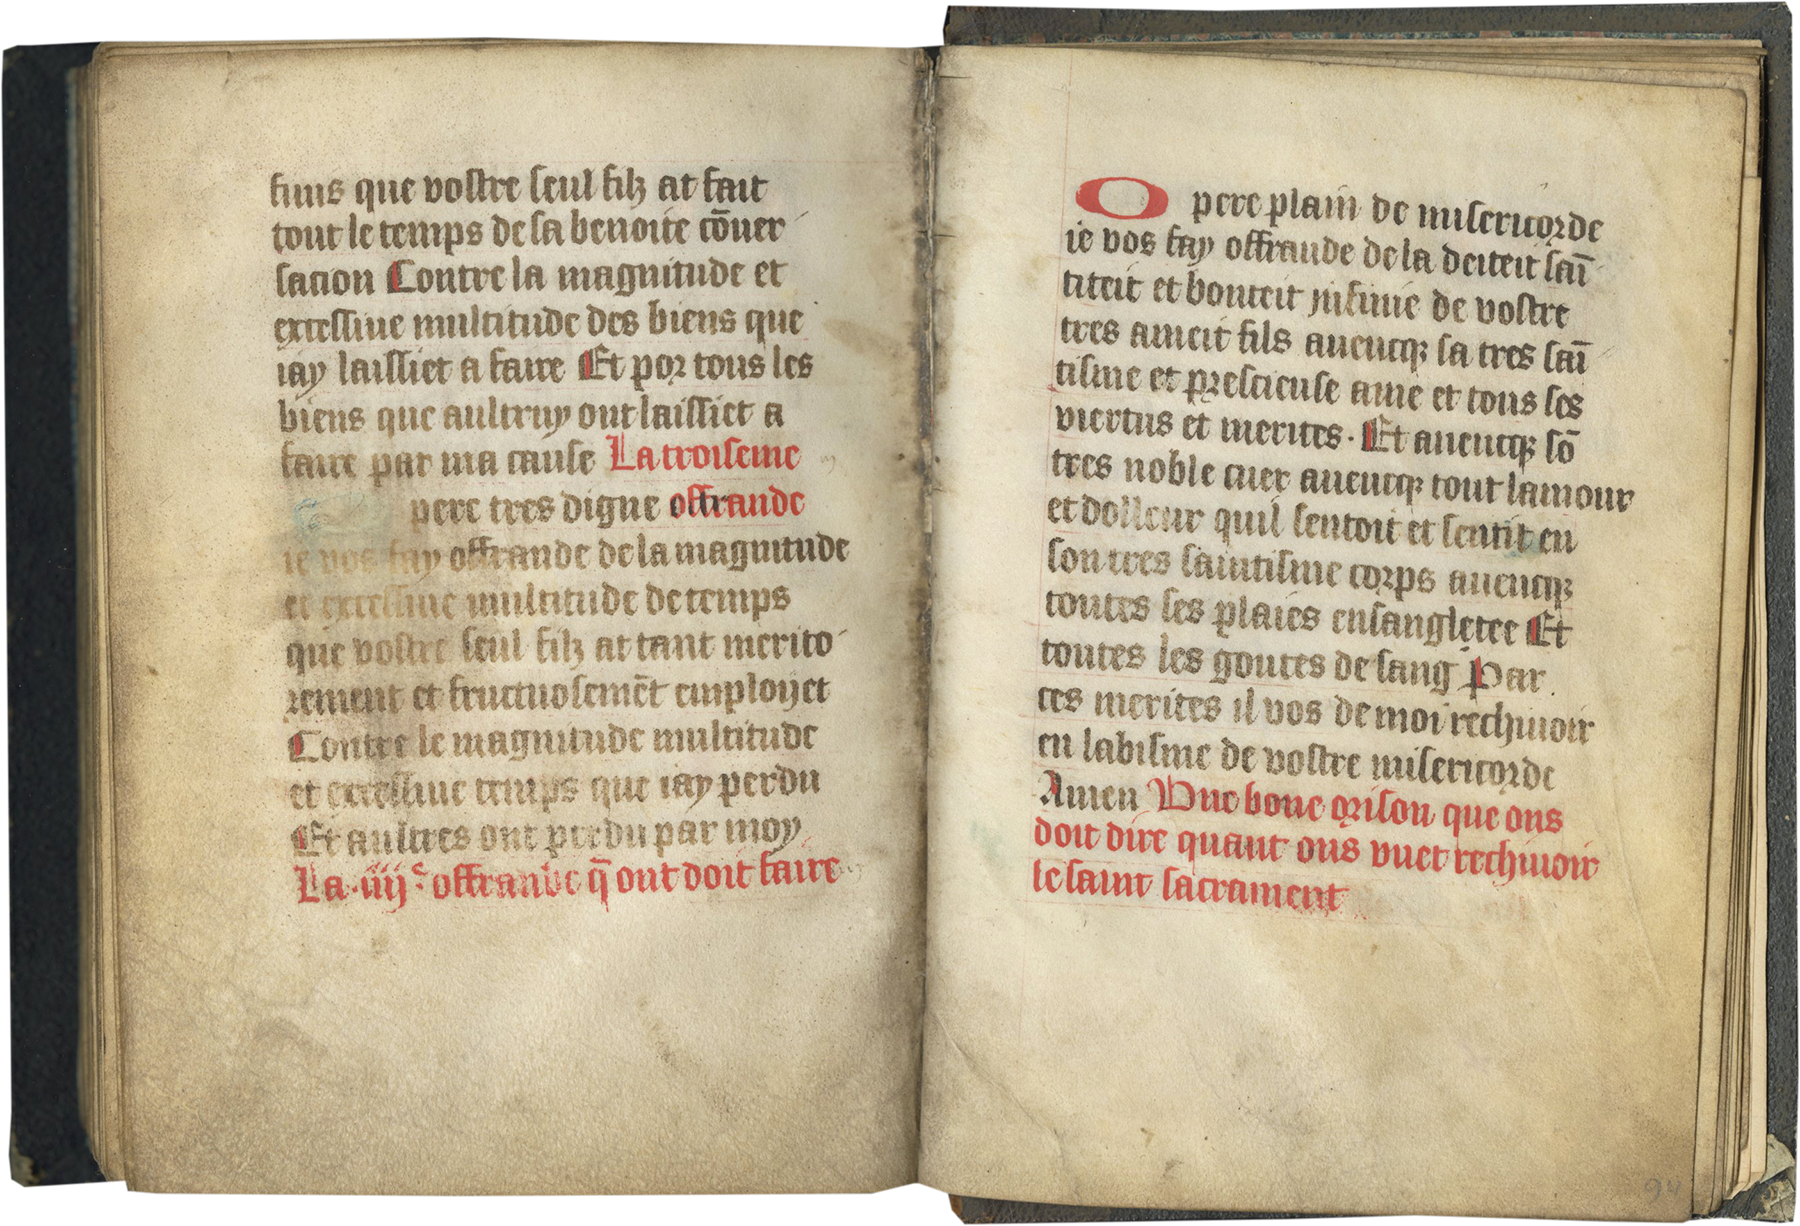 fruis que vostre seul filz at fait
tout le temps de sa benoite cōuer
sacion Contre la magnitude et
excessiue multitude des biens que
iay laissiet a faire Et por tous les
biens que aultruy ont laissiet a
faire par ma cause La troiseme
pere tres digne offrande
ie vos fay offrande de la magnitude
et excessiue multitude de temps
que vostre seul filz at tant merito
rement et fructuosemēt employet
Contre le magnitude multitude
et excessiue temps que iay perdu
Et aultres ont perdu par moy
La .iiij.e offrande q̄ ont doit faire
O pere plain de misericorde
ie vos fay offrande de la deiteit sāi
titeit et bonteit infinie de vostre
tres ameit fils auencq; sa tres sāi
tisme et prescieuse ame et tous ses
viertus et merites. Et auencq; sō
tres noble cuer auencq; tout lamour
et dolleur quil sentoit et sentit en
son tres saintisme corps auencq;
toutes ses plaies ensanglētee Et
toutes les goutes de sang Par
ces merites il vos de moi rechiuoir
en labisme de vostre misericorde
Amen Vne bone orison que ons
doit dire quant ons vuet rechiuoir
le saint sacrament
94